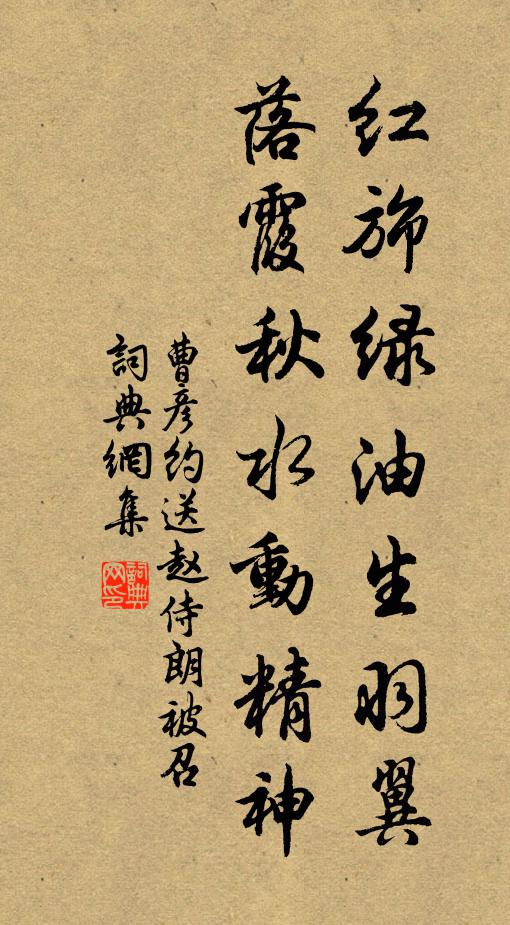 红旆绿油生羽翼
落霞秋水動精神
曹彦约送赵侍朗被召
詞典網集
詞典網印